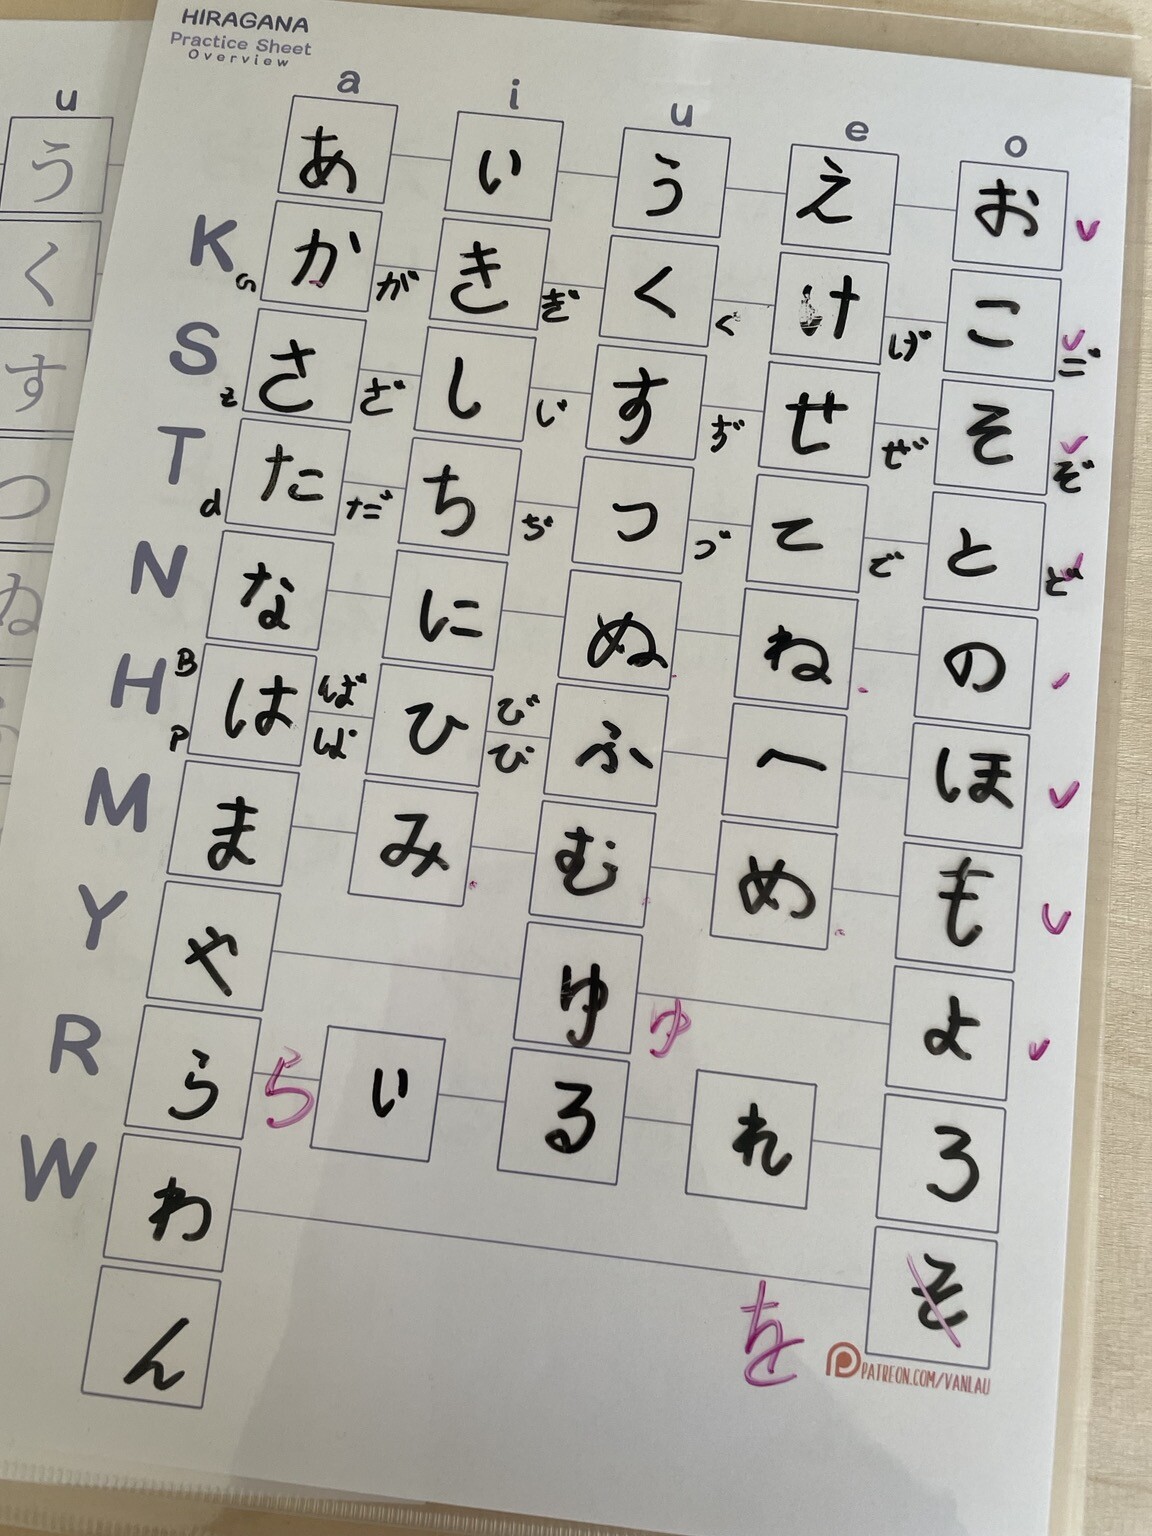 HIRAGANA
Practice Sheet
Overview
a i u e o
あ い う え お
K G か が き ぎ く ぐ け げ こ ご
S z さ ざ し じ す ず せ ぜ そ ぞ
T d た だ ち ぢ つ づ て で と ど
N な に ぬ ね の
H B P は ば ぱ ひ び ぴ ふ へ ほ
M ま み む め も
Y や ゆ ゆ よ
R ら ら い る れ ろ
W わ を
ん
PATREON.COM/VANLAU
u
う
く
す
つ
ぬ